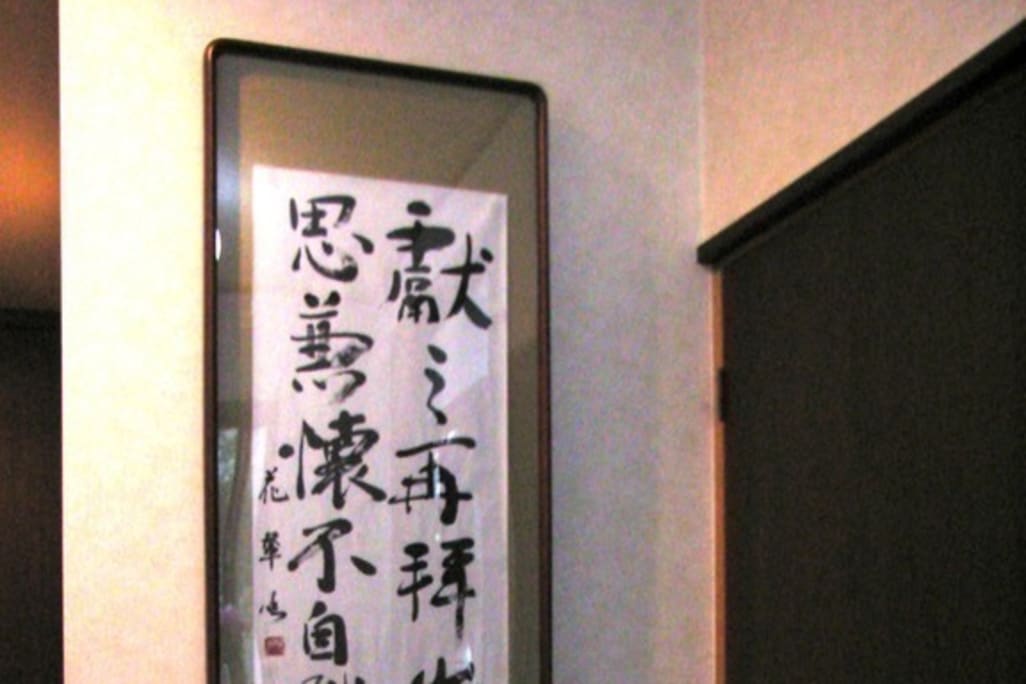 獻之再拜
思兼懷不自
花